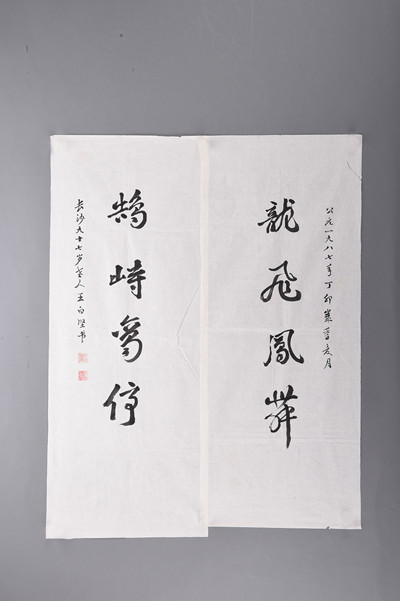 公元一九八七年丁卯歲月
龍飛鳳舞
鵠峙鸞停
长沙九十七岁老人王白坚书